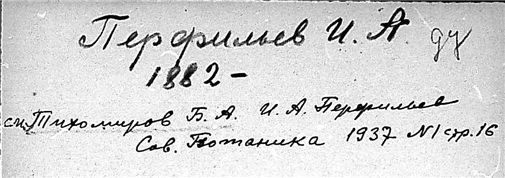 Перфильев И. А.
1882 –
см. Тихомиров Б. А. И. А. Перфильев
Сов. Ботаника 1937 N1 стр. 16